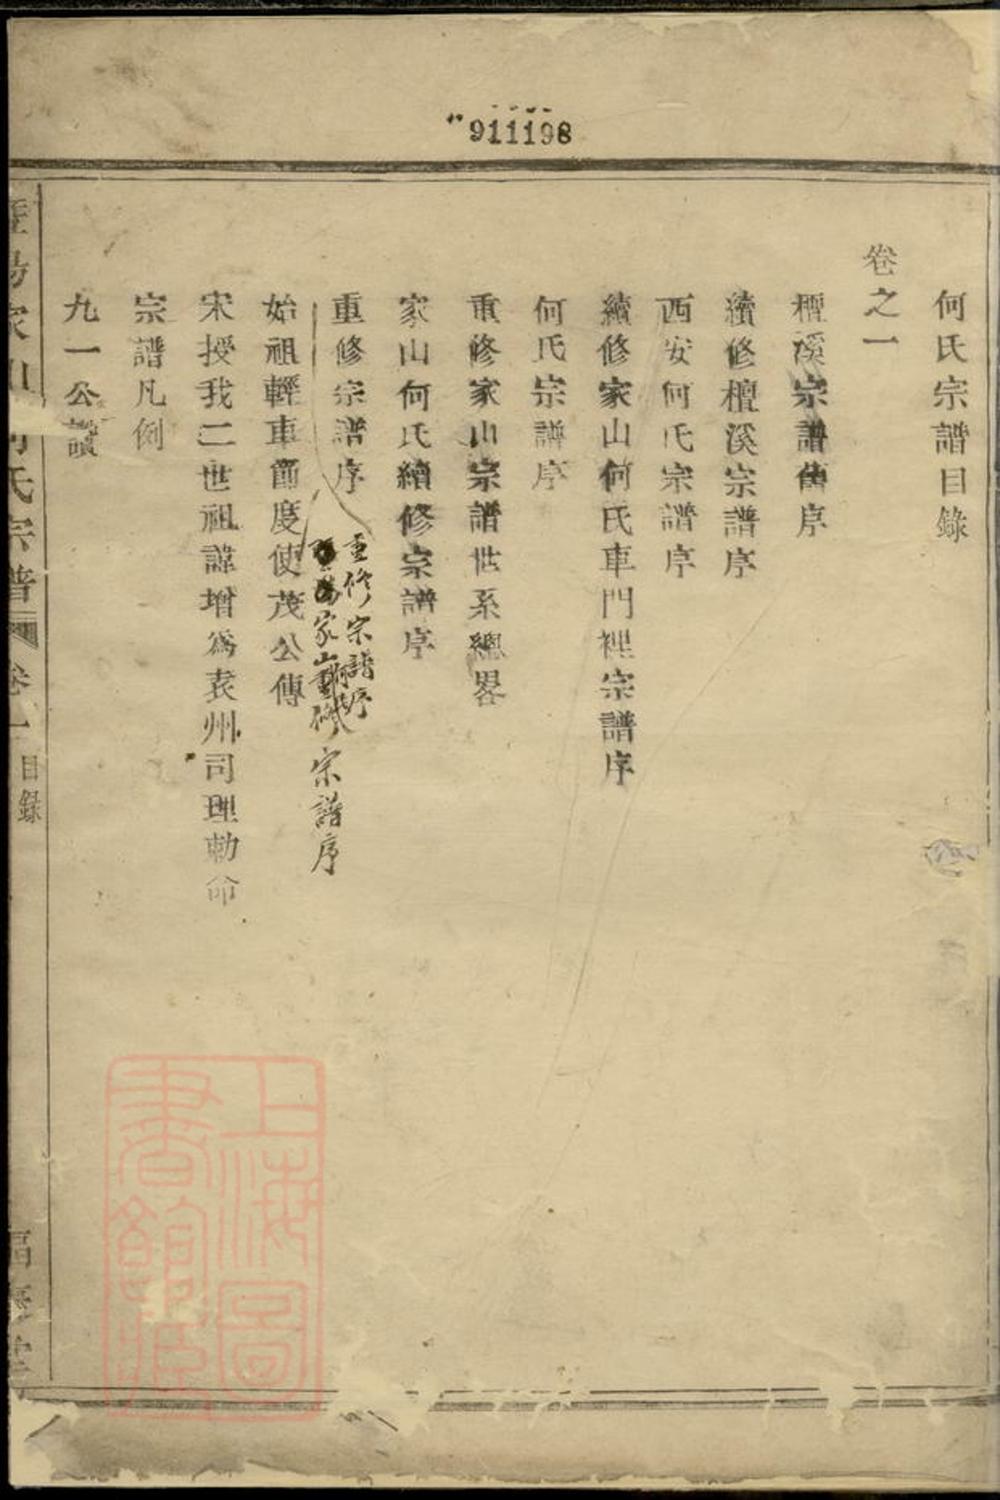 911198
何氏宗譜目錄
卷之一
檀溪宗譜舊序
續修檀溪宗譜序
西安何氏宗譜序
續修家山何氏車門裡宗譜序
何氏宗譜序
重修家山宗譜世系總畧
家山何氏續修宗譜序
重修宗譜序
重修宗譜序
家山
宗譜序
始祖輕車節度使茂公傳
宋授我二世祖諱增為袁州司理勅命
宗譜凡例
九一公讚
暨陽家山何氏宗譜
卷一
目錄
上海圖書館藏